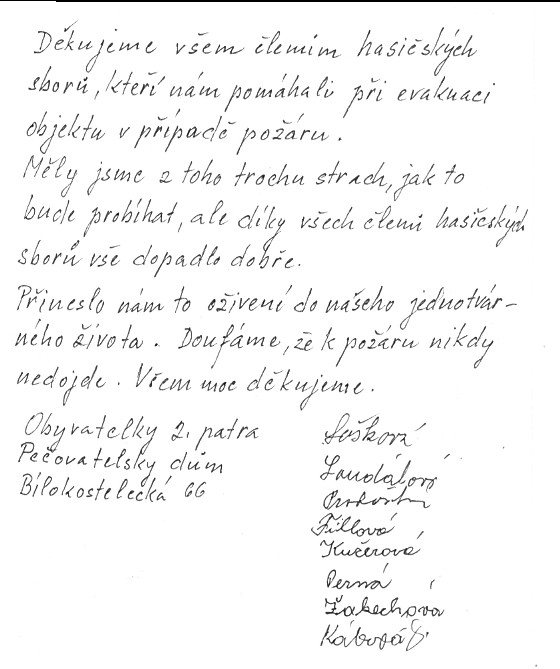 Děkujeme všem členům hasičských
sborů, kteří nám pomáhali při evakuaci
objektu v případě požáru.
Měly jsme z toho trochu strach, jak to
bude probíhat, ale díky všech členů hasičských
sborů vše dopadlo dobře.
Přineslo nám to oživení do našeho jednotvár-
ného života. Doufáme, že k požáru nikdy
nedojde. Všem moc děkujeme.
Obyvatelky 2. patra
Pečovatelský dům
Bílokostelecká 66
Sošková
Fillová
Kučerová
Perná